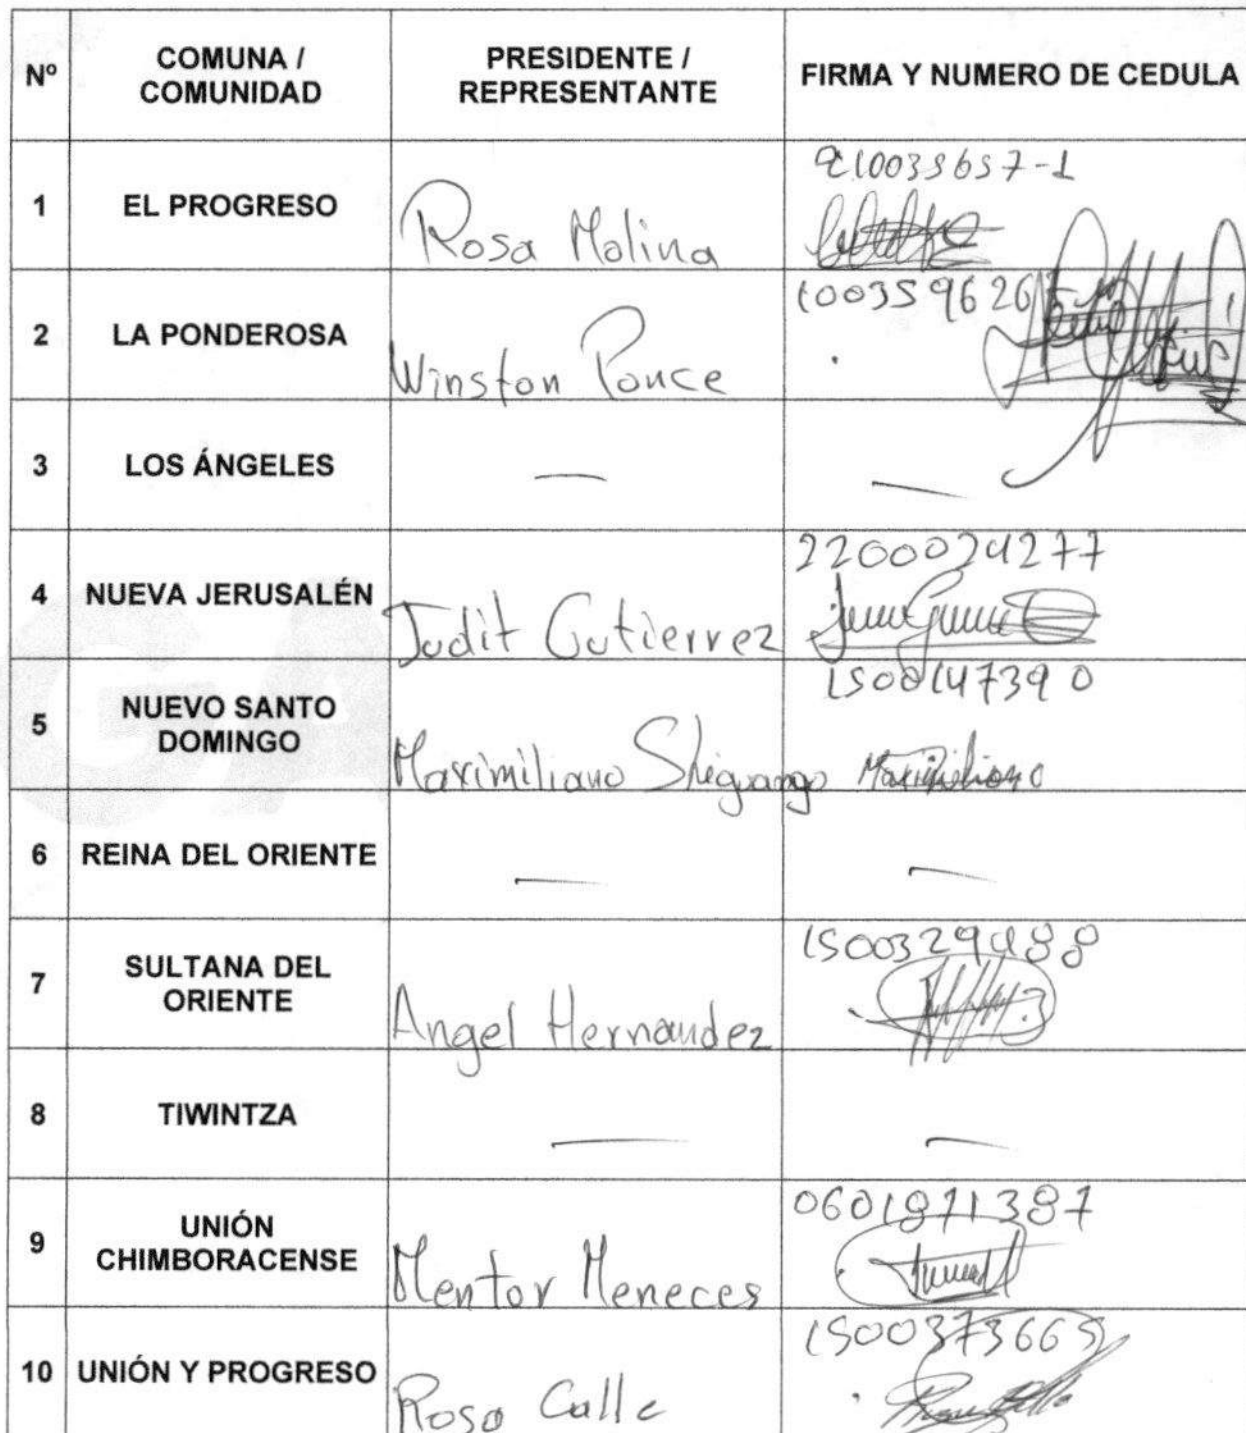 Nº
COMUNA /
COMUNIDAD
PRESIDENTE /
REPRESENTANTE
FIRMA Y NUMERO DE CEDULA
1
EL PROGRESO
Rosa Molina
210033657-1
2
LA PONDEROSA
Winston Ponce
3
LOS ÁNGELES
—
—
4
NUEVA JERUSALÉN
Judit Gutierrez
2200024277
5
NUEVO SANTO
DOMINGO
Maximiliano Shiguango
1500147390
Maximiliano
6
REINA DEL ORIENTE
—
—
7
SULTANA DEL
ORIENTE
Angel Hernandez
1500329488
8
TIWINTZA
—
—
9
UNIÓN
CHIMBORACENSE
Mentor Meneces
0601871387
10
UNIÓN Y PROGRESO
Rosa Calle
1500373665